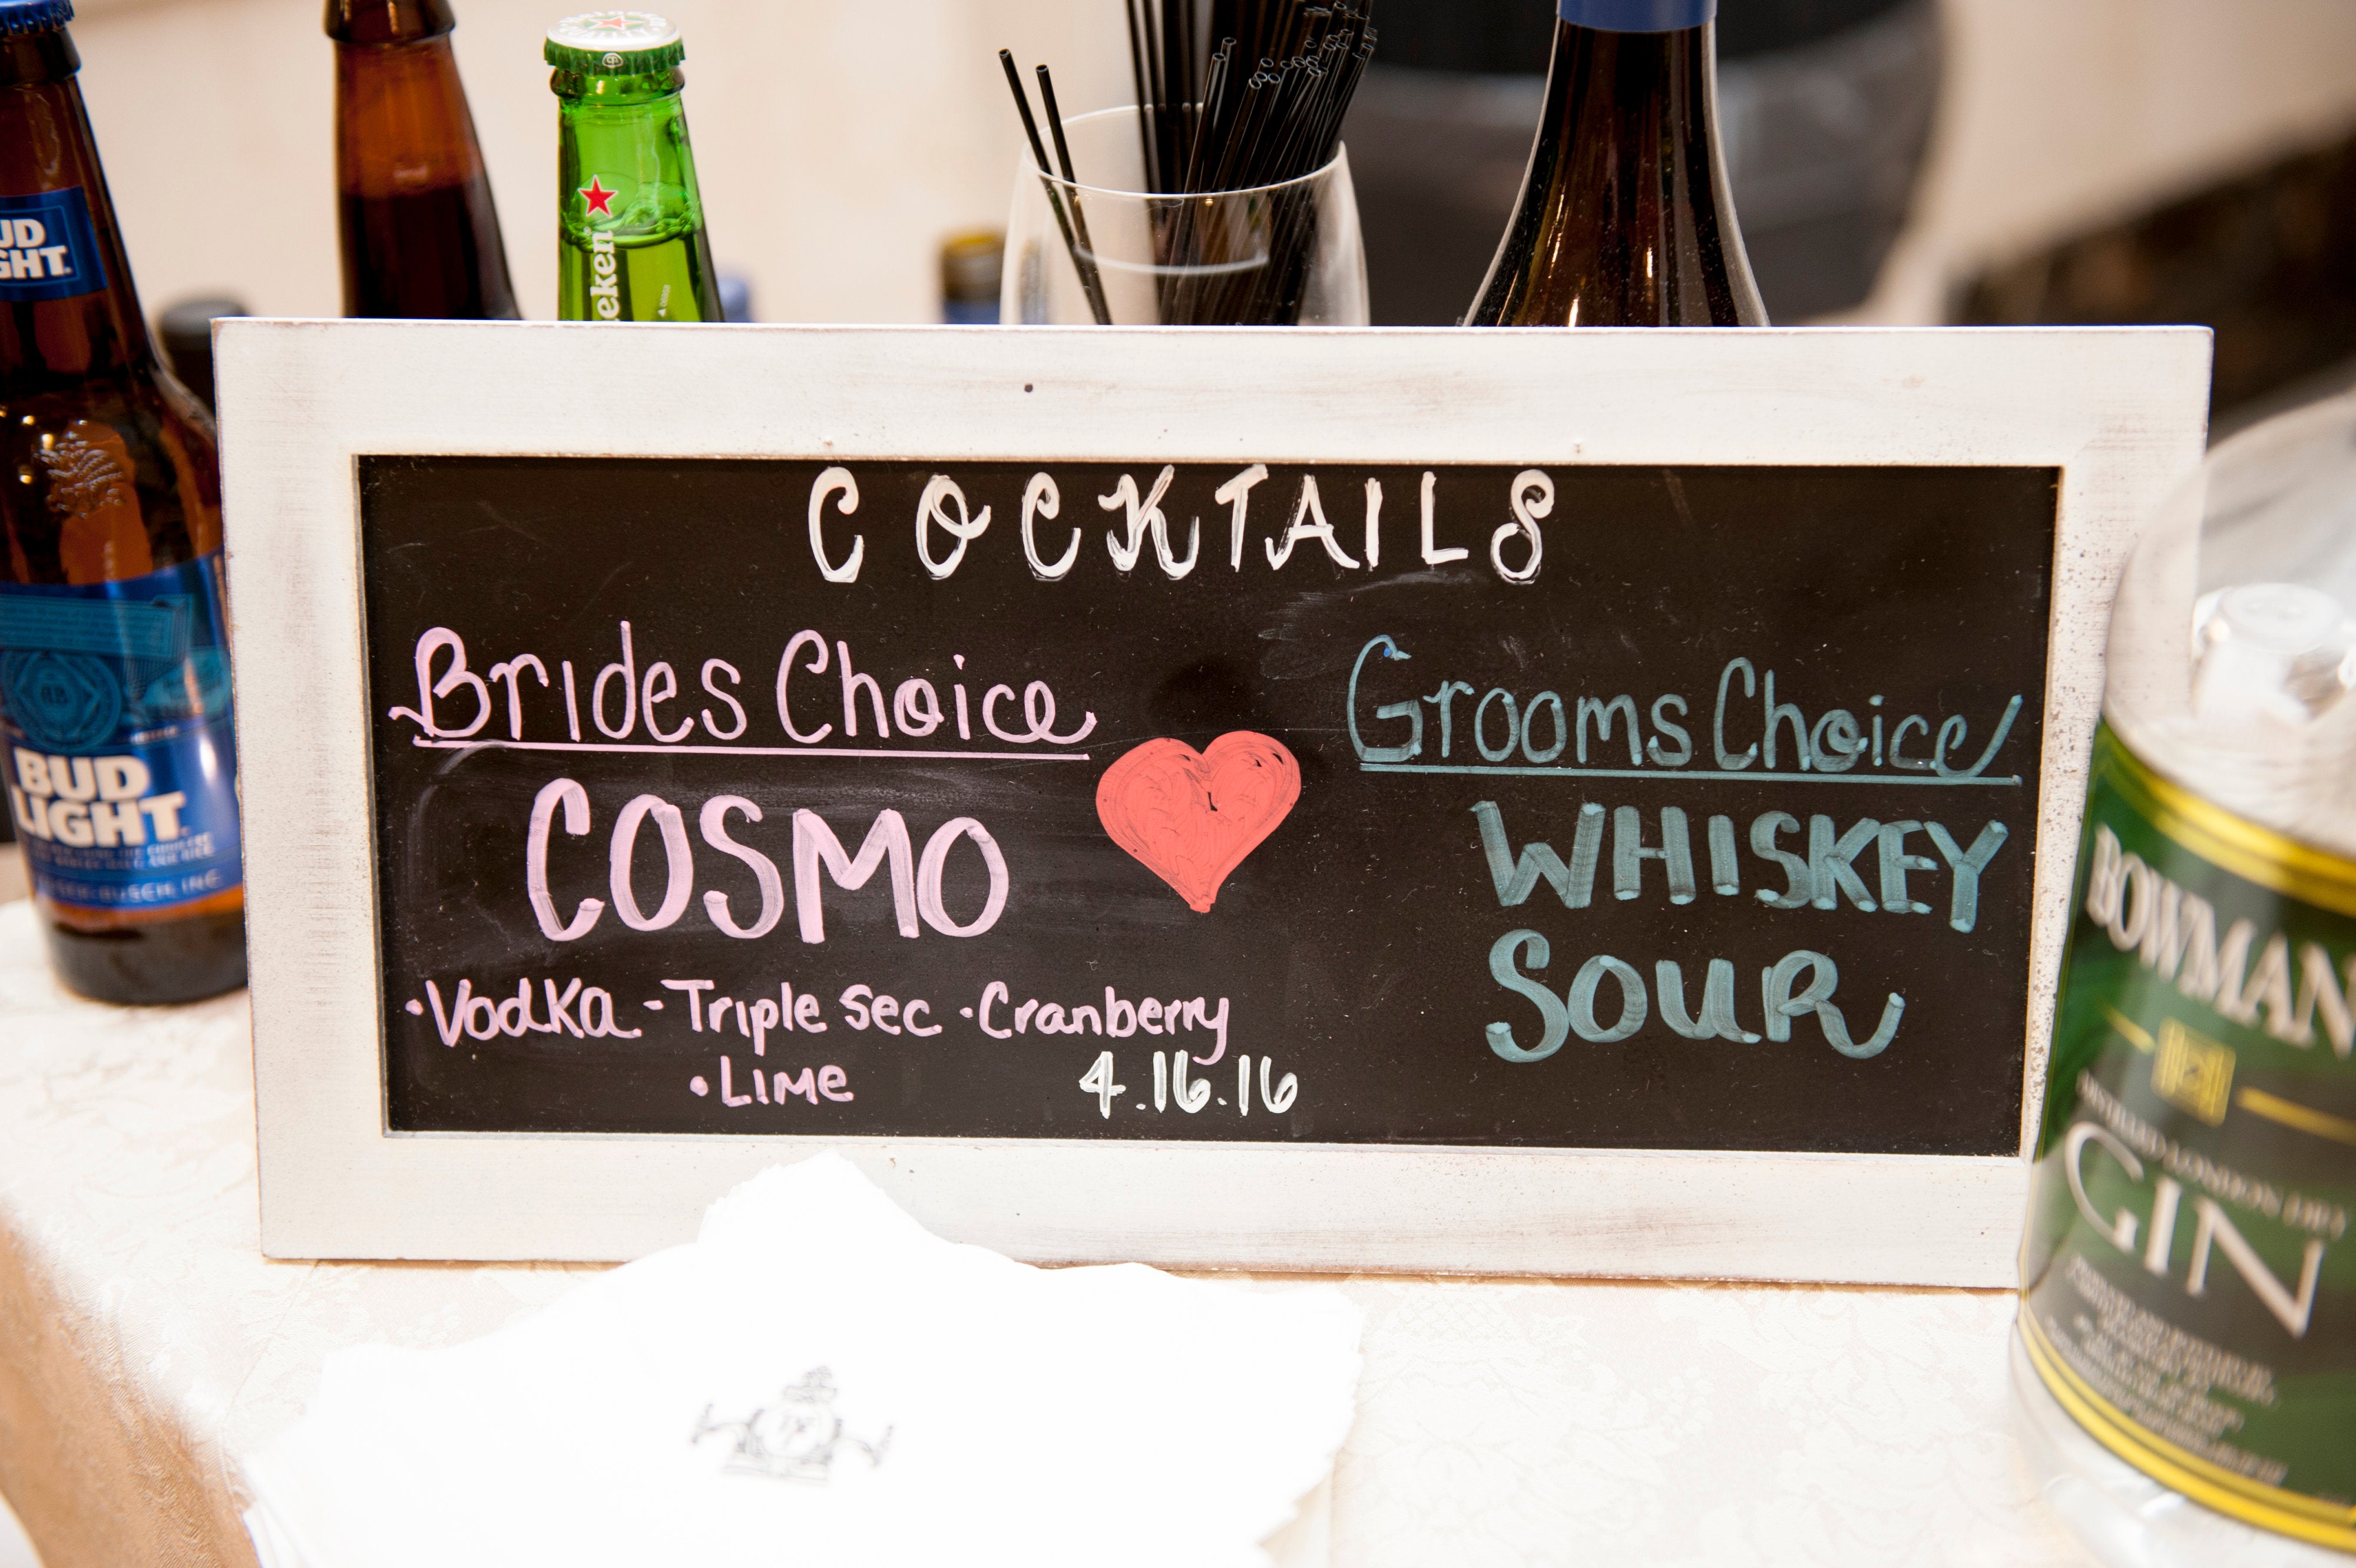 UD
GHT
eken
COCKTAILS
Brides Choice
Grooms Choice
COSMO
WHISKEY
SOUR
·Vodka -Triple Sec ·Cranberry
·LIME
4.16.16
BUD
LIGHT
BOWMAN
DISTILLED LONDON DRY
GIN